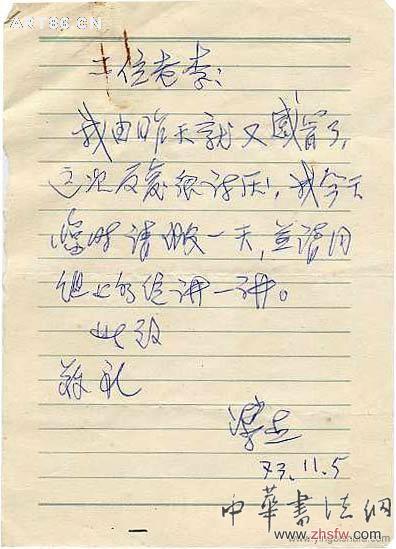 ART86.CN
二位老李：
我由昨天就又感冒了，
这次反复很讨厌，我今天
临时请假一天，並请同
组上的信讲一讲。
此致
敬礼
73.11.5
中華書法網
www.zhsfw.com